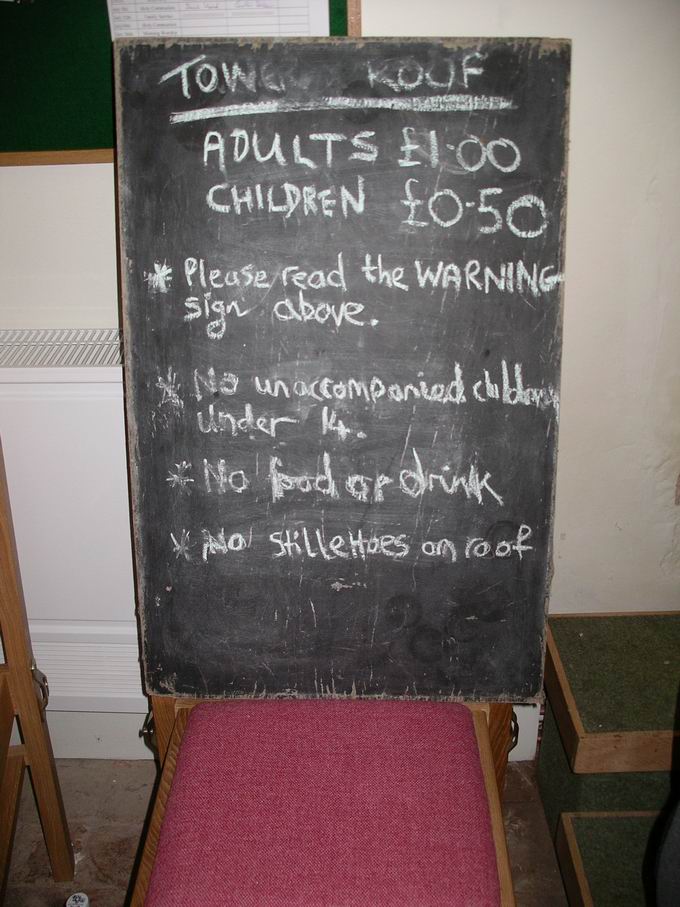 TOWER ROOF
ADULTS £1.00
CHILDREN £0.50
* Please read the WARNING
sign above.
* No unaccompanied children
under 14.
* No food or drink
* No stillettoes on roof